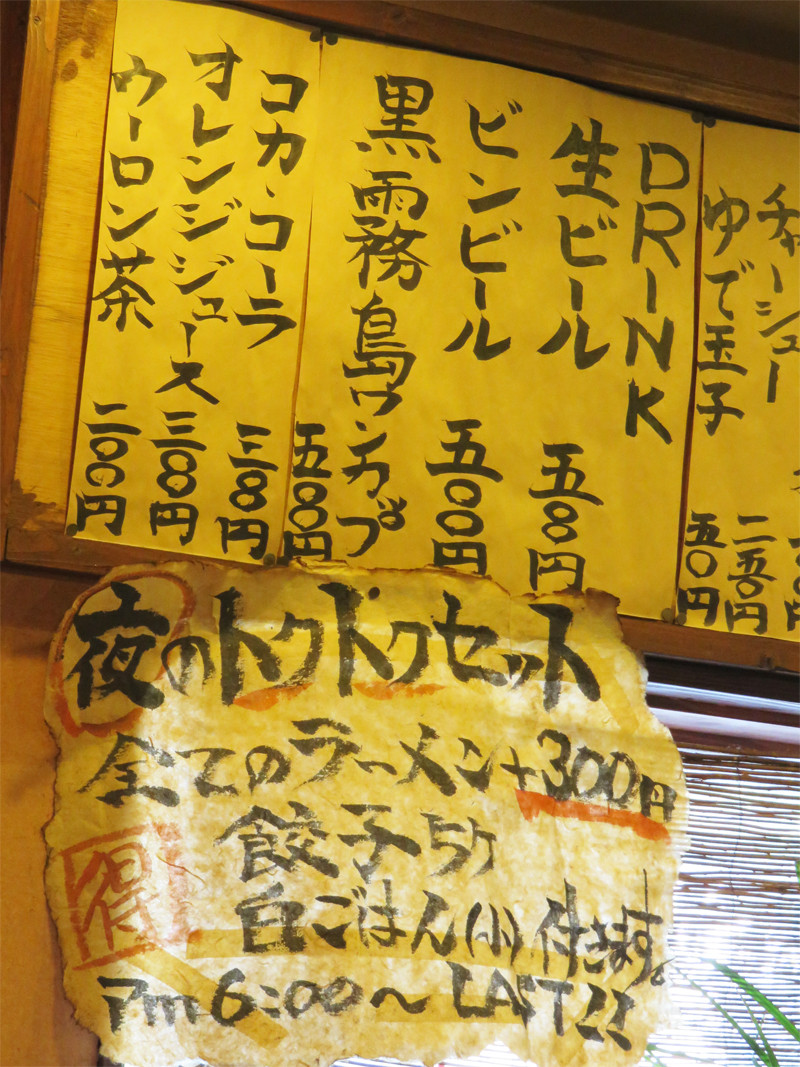 チャーシュー 二五〇円
ゆで玉子 五〇円
DRINK
生ビール 五〇〇円
ビンビール 五〇〇円
黒霧島ワンカップ 五〇〇円
コカ・コーラ 三〇〇円
オレンジジュース 三〇〇円
ウーロン茶 二〇〇円
夜のトクトクセット
全てのラーメン+300円
餃子5ケ
得
白ごはん(小)付きます。
Pm6:00〜LAST!!